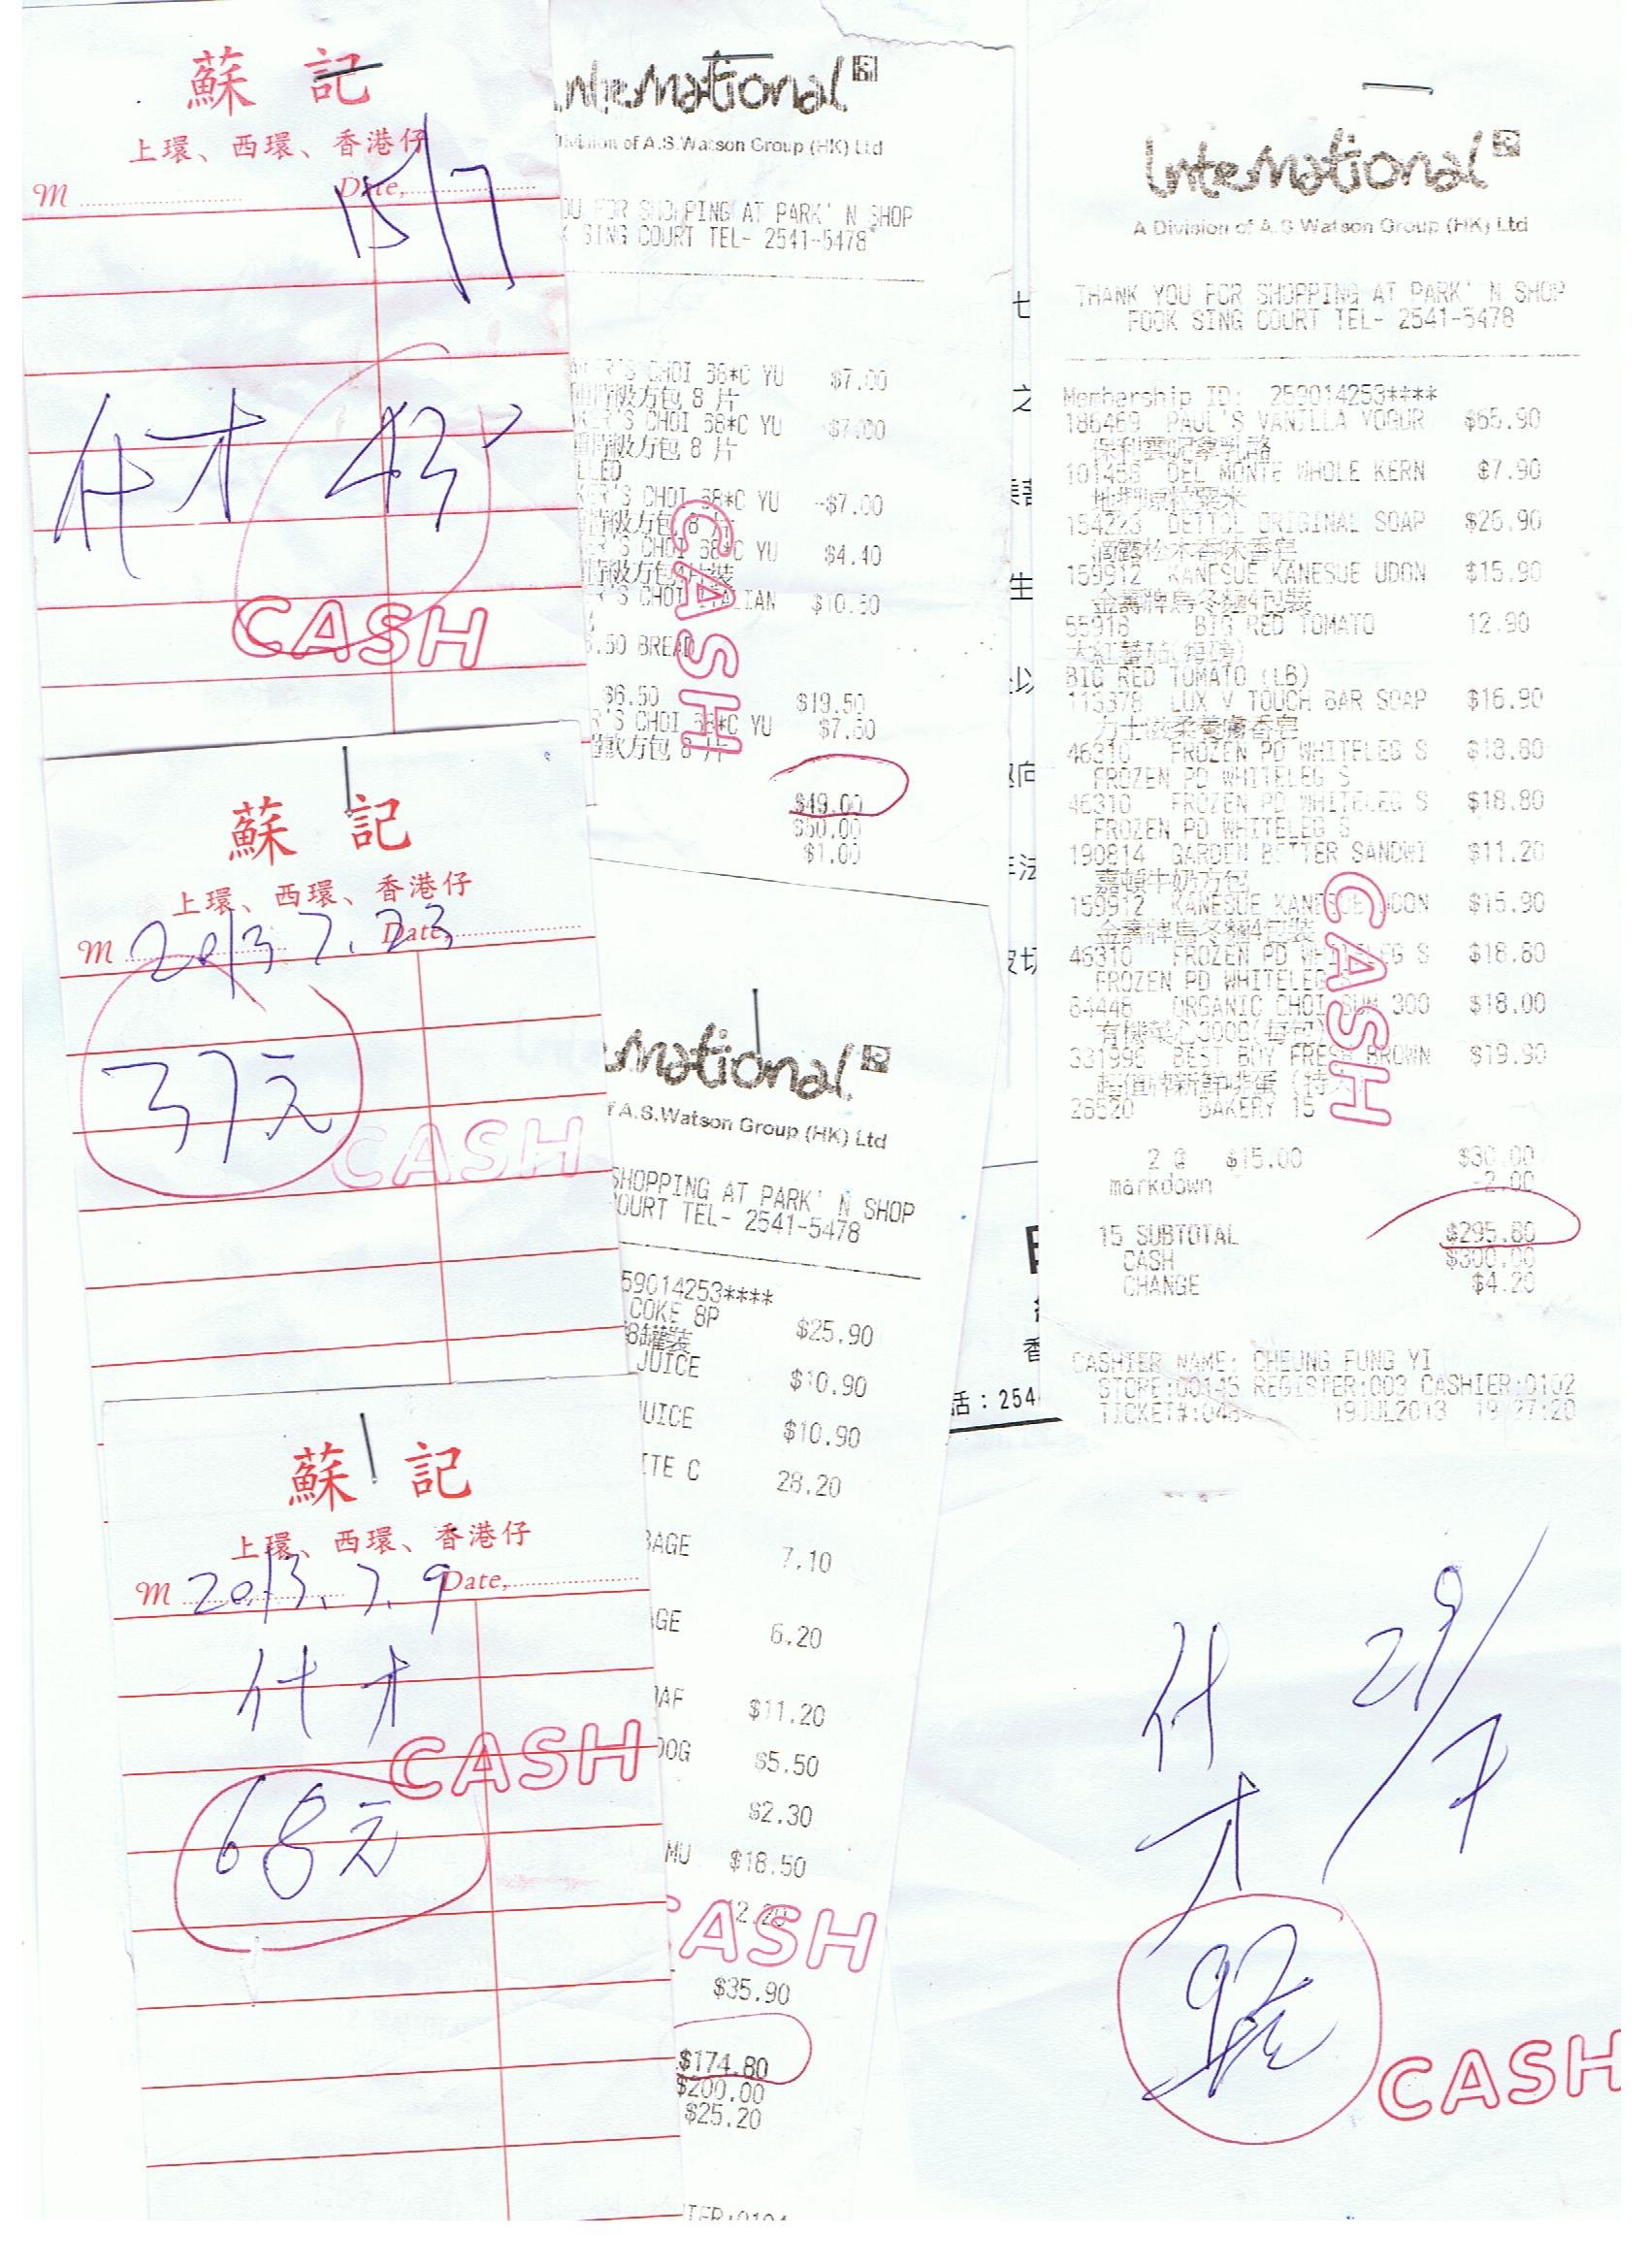 蘇記
上環、西環、香港仔
M Date,
15/7
什才
CASH
蘇記
上環、西環、香港仔
M Date,
2013 7. 23
37元
CASH
蘇記
上環、西環、香港仔
M Date,
2013. 7. 9
什才
CASH
68元
International
Division of A.S.Watson Group (HK) Ltd
FOR SHOPPING AT PARK'N SHOP
SING COURT TEL- 2541-5478
CHOI 68*C YU $7.00
方包 8 片
CHOI 68*C YU $7.00
方包 8 片
'S CHOI 68*C YU -$7.00
方包 8 片
'S CHOI 68*C YU $4.40
'S CHOI ITALIAN $10.50
BREAD
$6.50 $19.50
'S CHOI 68*C YU $7.60
方包 8 片
$49.00
$50.00
$1.00
CASH
A.S.Watson Group (HK) Ltd
SHOPPING AT PARK'N SHOP
COURT TEL- 2541-5478
59014253****
COKE 8P $25.90
8罐裝
JUICE $10.90
UICE $10.90
ITE C 28.20
BAGE 7.10
GE 6.20
OAF $11.20
DOG $5.50
$2.30
MU $18.50
CASH
$35.90
$174.80
$200.00
$25.20
International
A Division of A.S Watson Group (HK) Ltd
THANK YOU FOR SHOPPING AT PARK'N SHOP
FOOK SING COURT TEL- 2541-5478
Membership ID: 259014253****
186469 PAUL'S VANILLA YOGUR $65.90
保利雲呢拿乳酪
101453 DEL MONTE WHOLE KERN $7.90
154223 DETTOL ORIGINAL SOAP $26.90
滴露松木香味香皂
159912 KANESUE KANESUE UDON $15.90
金壽牌烏冬麵4包裝
55918 BIG RED TOMATO 12.90
大紅蕃茄(每磅)
BIG RED TOMATO (LB)
113378 LUX V TOUCH BAR SOAP $16.90
力士滋柔養膚香皂
46310 FROZEN PD WHITELEG S $18.80
FROZEN PD WHITELEG S
46310 FROZEN PD WHITELEG S $18.80
FROZEN PD WHITELEG S
190814 GARDEN BETTER SANDWI $11.20
嘉頓牛奶方包
159912 KANESUE KANESUE UDON $15.90
金壽牌烏冬麵4包裝
46310 FROZEN PD WHITELEG S $18.80
FROZEN PD WHITELEG S
64446 ORGANIC CHOI SUM 300 $18.00
有機菜心300G(每包)
331995 BEST BUY FRESH BROWN $19.90
26520 BAKERY 15
2 @ $15.00 $30.00
markdown -2.00
15 SUBTOTAL $295.80
CASH $300.00
CHANGE $4.20
CASH
CASHIER NAME: CHEUNG FUNG YI
STORE:00145 REGISTER:003 CASHIER:0102
19JUL2013 19:27:20
話：254
什才
29/7
CASH